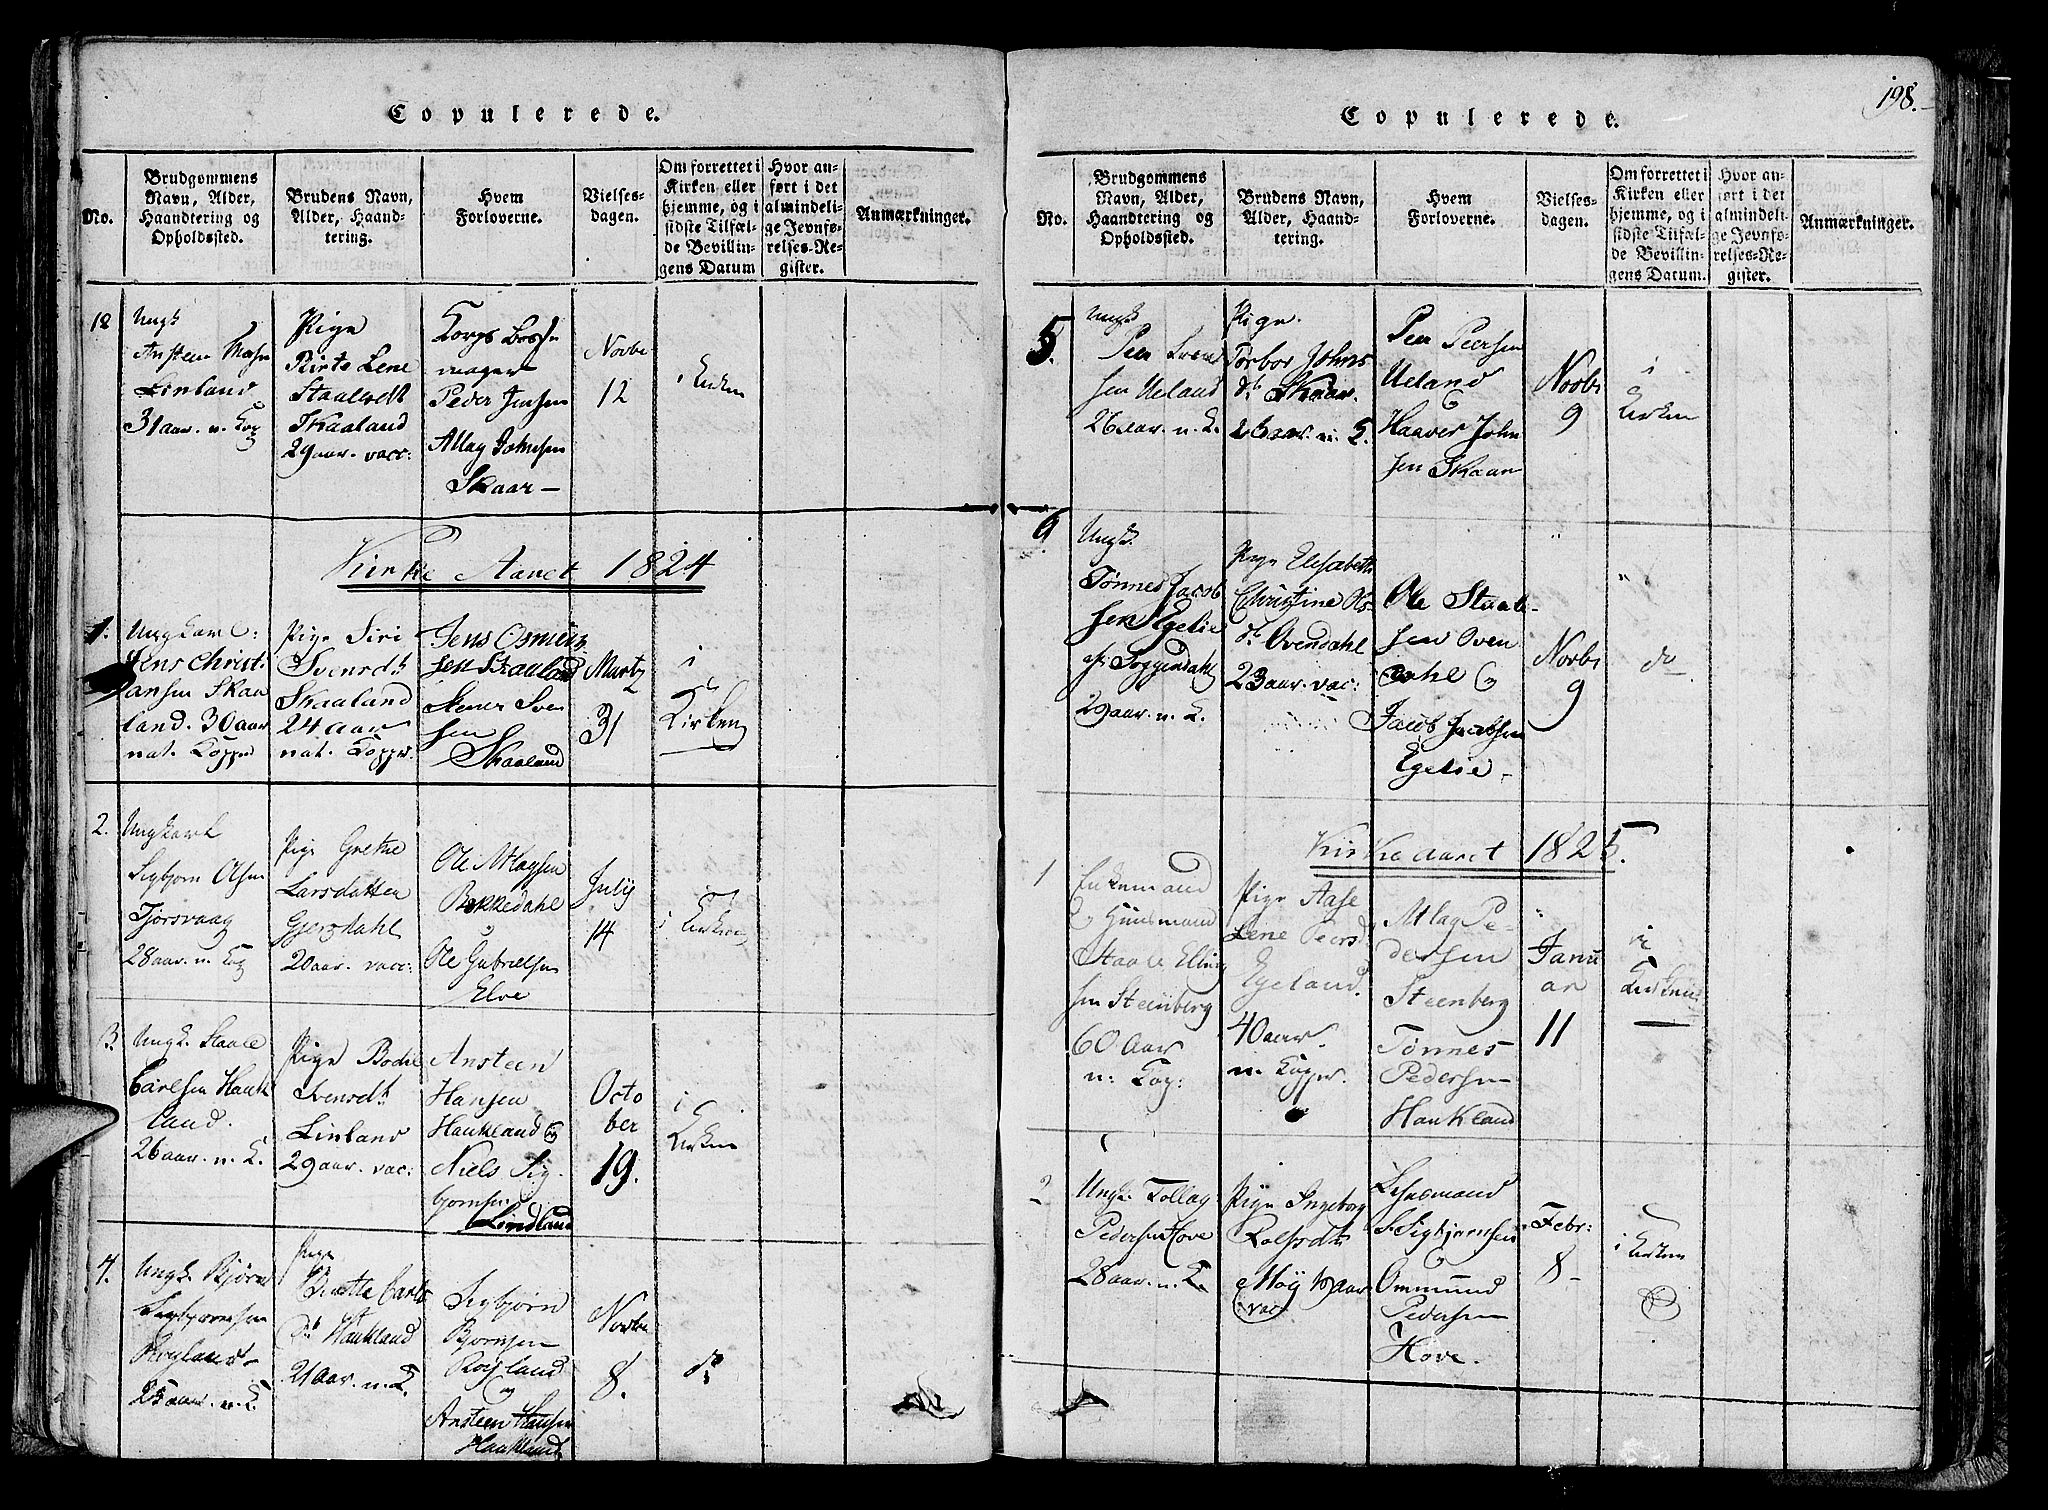 Copulerede.
No.
Brudgommens Navn, Alder, Haandtering og Opholdssted.
Brudens Navn, Alder, Haandtering.
Hvem Forloverne.
Vielsesdagen.
Om forrettet i Kirken eller hjemme, og i sidste Tilfælde Bevillingens Datum
Hvor anført i det almindelige Jevnførelses-Register.
Anmærkninger.
12
Ungk
Ansteen
Linland
31 aar. n. Kop
Pige
Birte Lene
Staalesdt
Skaaland
29 aar. vacc:
Peder Jensen
Atlag Johnsen
Skaar —
Novbr
12
i Kirken
Kirke Aaret 1824
1.
Ungkarl:
Jens Christi
ansen Skaa
land. 30 aar
nat. Kopper
Pige Siri
Svensdtr
Skaaland
24 aar
nat. Kopper.
Jens Osmund
sen Skaaland
Stener Sven
sen
Skaaland
Martz
31
i
Kirken
2.
Ungkarl
Sigbjørn Olsen
Tjørsvaag
28 aar. n. Kop
Pige Grethe
Larsdatter
Gjersdahl
20 aar. vacc:
Ole Atlaysen
Bakkedahl
Ole Gabrielsen
Elve
July
14
i Kirken
3.
Ungk. Staale
Carlsen Hauk
land.
26 aar. n. K.
Pige Bodil
Svensdtr
Linland
29 aar. vac:
Ansteen
Hansen
Haukland og
Niels Sig
bjørnsen
Lindland
Octo
ber
19.
i
Kirken
4.
Ungk. Bjørn
Sigbjørnsen
Røyland
25 aar. n. K
Pige
Berthe Carls
dtr Haukland
21 aar. n. K.
Sigbjørn
Bjørnsen
Røyland
og
Ansteen Hansen
Haukland
Novbr
8.
do
198.
Copulerede.
No.
Brudgommens Navn, Alder, Haandtering og Opholdssted.
Brudens Navn, Alder, Haandtering.
Hvem Forloverne.
Vielsesdagen.
Om forrettet i Kirken eller hjemme, og i sidste Tilfælde Bevillingens Datum.
Hvor anført i det almindelige Jevnførelses-Register.
Anmærkninger.
5.
Ungk
Peer Svend
sen Ueland
26 aar. n. K.
Pige.
Torbor Johns
dtr Skaar.
26 aar. n. K.
Peer Peersen
Ueland
og
Haaver John
sen Skaar
Novbr
9
i
Kirken
6
Ungk.
Tønnes Jacob
sen Egelie
af Soggendahl
29 aar. n. K.
Pige Elisabeth
Christine Ols
dtr Ovendahl
23 aar. vac:
Ole Staale
sen Oven
dahl og
Jacob Jacobsen
Egelie.
Novbr
9
do
Kirkeaaret 1825.
1
Enkemand
og Huusmand
Staale Elling
sen Steenberg
60 Aar
n: Kop:
Pige Aase
Lene Peersd
Egeland.
40 aar.
n. Kopper.
Atlag Pe
dersen
Steenberg
Tønnes
Pedersen
Haukland
Janu
ar
11
i
Kirken
2
Ungk. Tollag
Pedersen Hove
28 aar. n. K.
Pige Ingeborg
Rolfsdtr
Møy 19 aar
vac:
S. Sigbjørnsen
og
Ommund
Pedersen
Hove.
Febr:
8
i Kirken